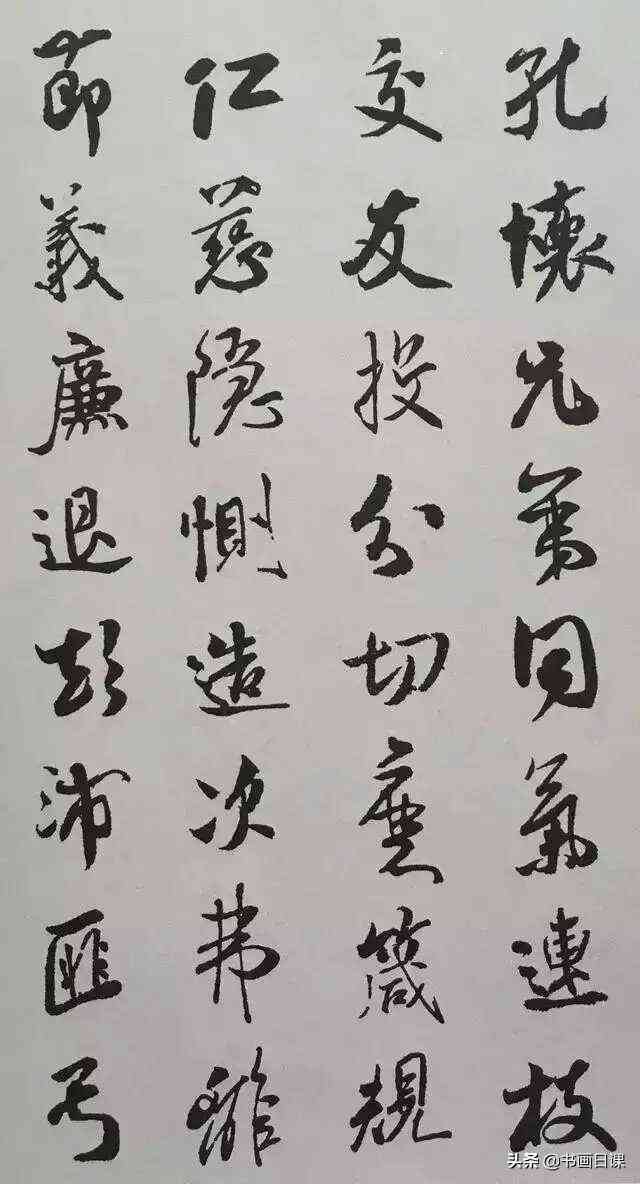 孔懷兄弟同氣連枝
交友投分切磨箴規
仁慈隱惻造次弗離
節義廉退顛沛匪虧
头条 @书画日课